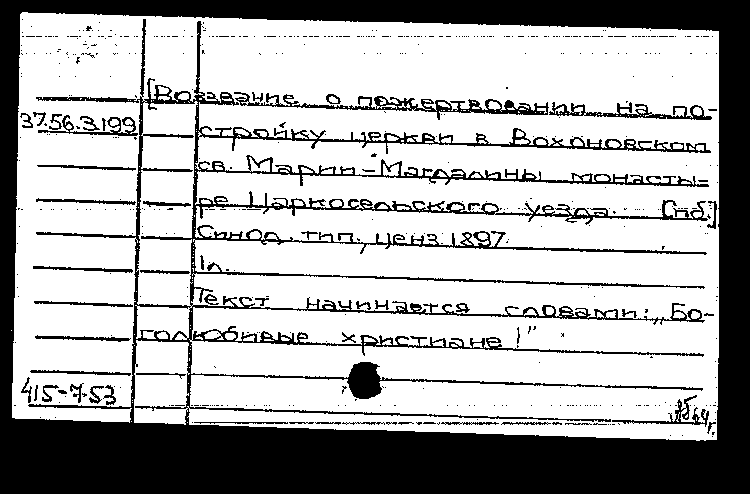 [Воззвание о пожертвовании на по-
37.56.3.199
стройку церкви в Вохоновском
св. Марии-Магдалины монасты-
ре Царкосельского уезда. [Пб.]
Синод. тип., ценз. 1897.
1л.
Текст начинается словами: „Бо-
голюбивые христиане!"
415-7-53